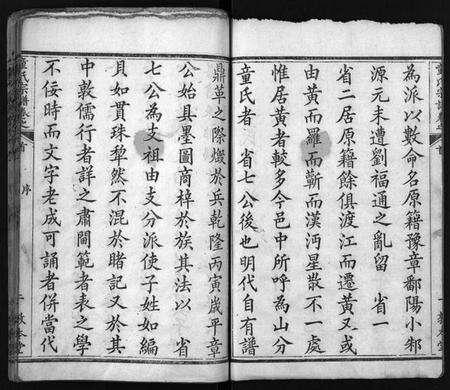 為派以數命名原籍豫章鄱陽小邾
源元末遭劉福通之亂留 省一
省二居原籍餘俱渡江而遷黃又或
由黃而羅而蘄而漢沔星散不一處
惟居黃者較多今邑中所呼為山分
童氏者 省七公後也明代自有譜
鼎革之際燬於兵乾隆丙寅歲平章
公始具墨圖商棹於族其法以 省
七公為支祖由支分派使子姓如編
貝如貫珠犁然不混於睹記又於其
中敦儒行者詳之肅閫範者表之學
不佞時而文字老成可誦者併當代
童氏宗譜卷之首 序